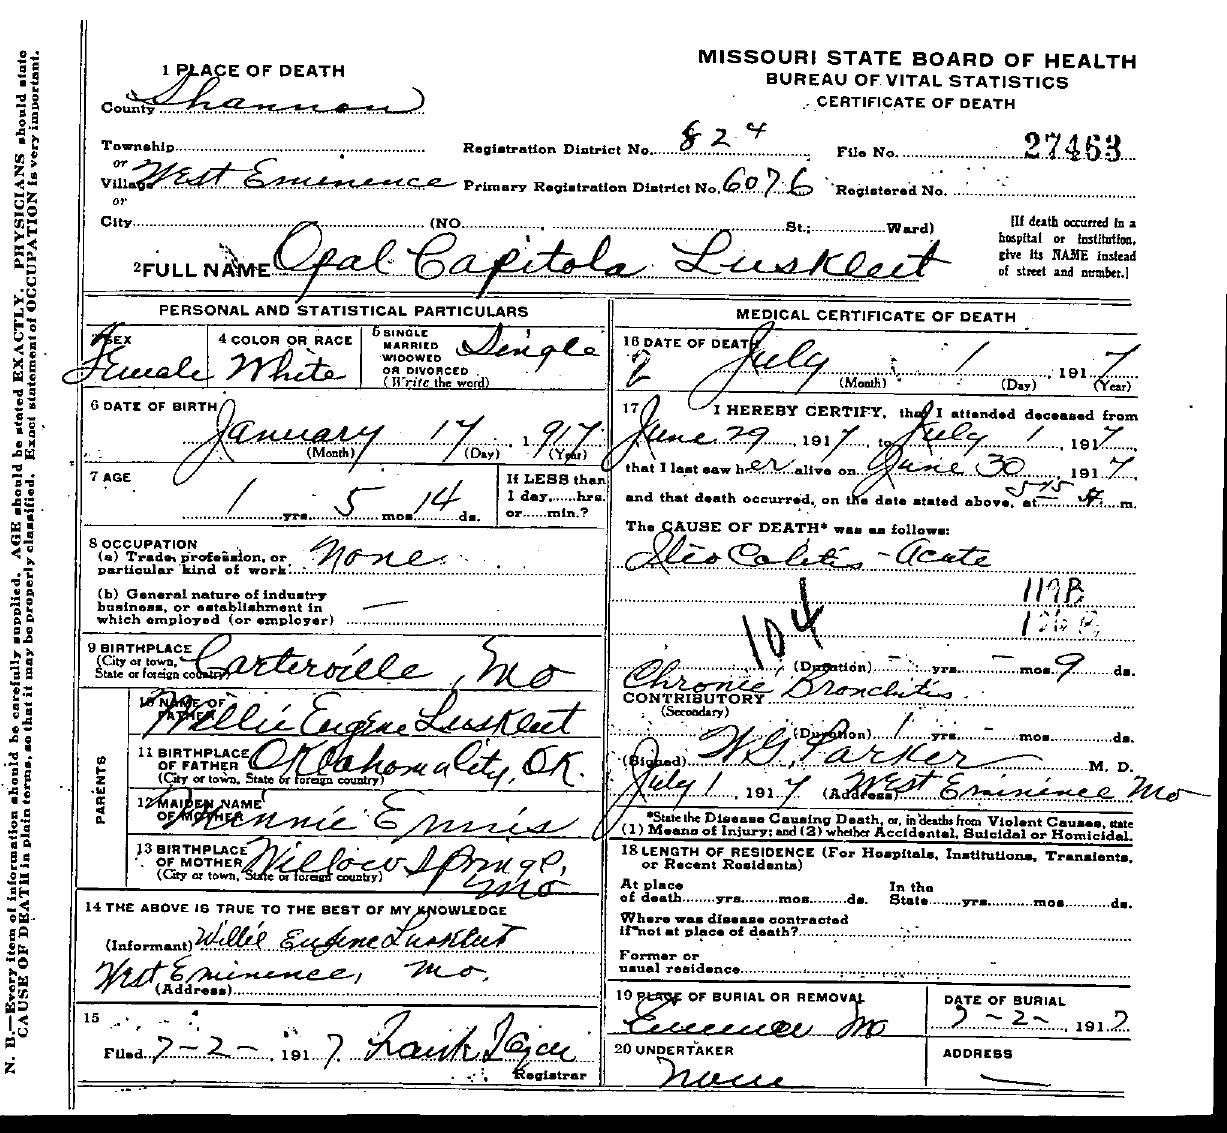 N. B.—Every item of information should be carefully supplied. AGE should be stated EXACTLY. PHYSICIANS should state
CAUSE OF DEATH in plain terms, so that it may be properly classified. Exact statement of OCCUPATION is very important.
MISSOURI STATE BOARD OF HEALTH
BUREAU OF VITAL STATISTICS
CERTIFICATE OF DEATH
1 PLACE OF DEATH
County Shannon
Township
or
Village West Eminence
or
City (NO. St.; Ward)
Registration District No. 824
File No. 27463
Primary Registration District No. 6076
Registered No.
[If death occurred in a
hospital or institution,
give its NAME instead
of street and number.]
2 FULL NAME Opal Capitola Luskleet
PERSONAL AND STATISTICAL PARTICULARS
SEX
Female
4 COLOR OR RACE
White
5 SINGLE
MARRIED
WIDOWED
OR DIVORCED
(Write the word)
Single
6 DATE OF BIRTH
January 17, 1917
(Month) (Day) (Year)
7 AGE
1 yrs. 5 mos. 14 ds.
If LESS than
1 day,......hrs.
or......min.?
8 OCCUPATION
(a) Trade, profession, or
particular kind of work None
(b) General nature of industry
business, or establishment in
which employed (or employer) —
9 BIRTHPLACE
(City or town,
State or foreign country)
Carterville, Mo
PARENTS
10 NAME OF
FATHER
Willie Eugene Luskleet
11 BIRTHPLACE
OF FATHER
(City or town, State or foreign country)
Oklahoma City, OK.
12 MAIDEN NAME
OF MOTHER
Minnie Ennis
13 BIRTHPLACE
OF MOTHER
(City or town, State or foreign country)
Willow Springs,
Mo
14 THE ABOVE IS TRUE TO THE BEST OF MY KNOWLEDGE
(Informant) Willie Eugene Luskleet
West Eminence, Mo.
(Address)
15
Filed 7-2-, 1917. Frank
Registrar
MEDICAL CERTIFICATE OF DEATH
16 DATE OF DEATH
2 July 1, 1917
(Month) (Day) (Year)
17 I HEREBY CERTIFY, that I attended deceased from
June 29, 1917, to July 1, 1917
that I last saw her alive on June 30, 1917,
and that death occurred, on the date stated above, at 515 A m.
The CAUSE OF DEATH* was as follows:
Ileo Colitis - Acute
119B
104
(Duration) - yrs. - mos. 9 ds.
Chronic Bronchitis
CONTRIBUTORY
(Secondary)
(Duration) 1 yrs. - mos. ds.
(Signed) W.G. Parker M. D.
July 1, 1917 (Address) West Eminence Mo
*State the Disease Causing Death, or, in deaths from Violent Causes, state
(1) Means of Injury; and (2) whether Accidental, Suicidal or Homicidal.
18 LENGTH OF RESIDENCE (For Hospitals, Institutions, Transients,
or Recent Residents)
At place
of death yrs. mos. ds.
In the
State yrs. mos. ds.
Where was disease contracted
if not at place of death?
Former or
usual residence
19 PLACE OF BURIAL OR REMOVAL
Eminence Mo
DATE OF BURIAL
7-2-, 1917
20 UNDERTAKER
None
ADDRESS
—